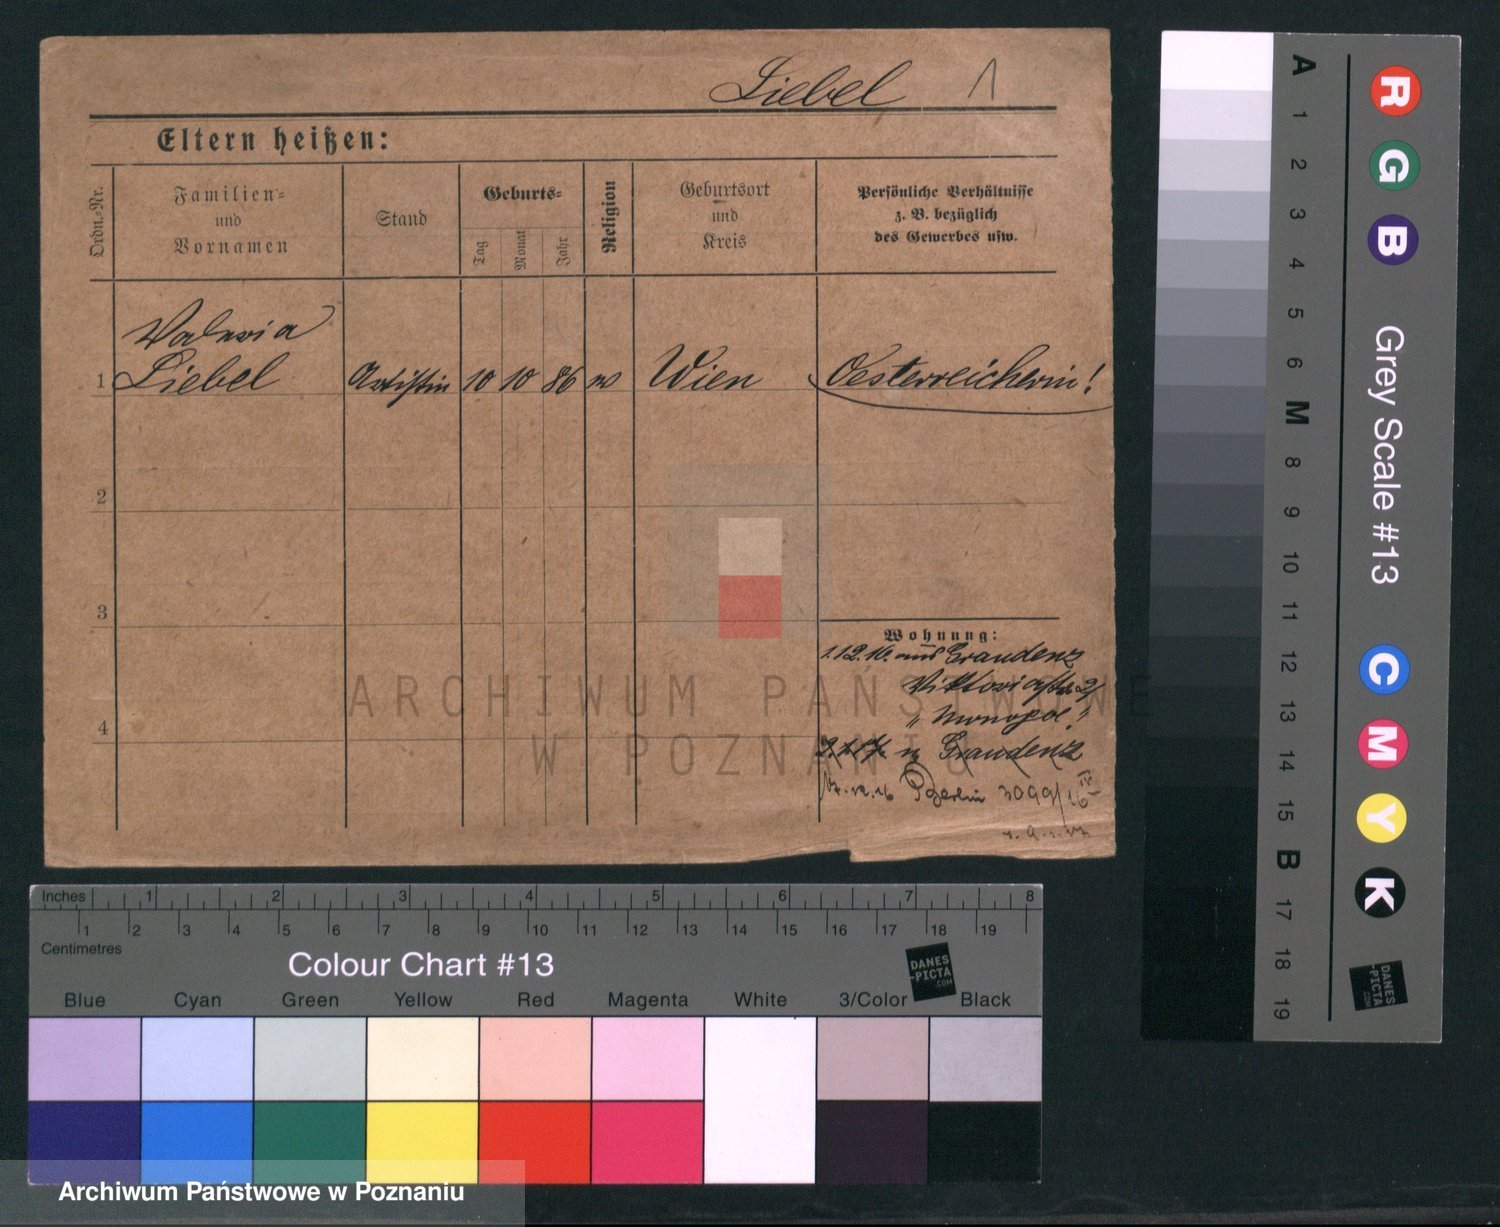 Liebel 1
Eltern heißen:
Ordn.-Nr.
Familien-
und
Vornamen
Stand
Geburts-
Tag
Monat
Jahr
Religion
Geburtsort
und
Kreis
Persönliche Verhältnisse
z. B. bezüglich
des Gewerbes usw.
Valeria
1 Liebel Artistin 10 10 86 Wien Oesterreicherin!
2
3
4
Wohnung:
1.12.16. aus Graudenz
Viktoriastr. 21
" Monopol!
n. Graudenz
Berlin 3099/16
ARCHIWUM PAŃSTWOWE
W POZNANIU
Inches 1 2 3 4 5 6 7 8
1 2 3 4 5 6 7 8 9 10 11 12 13 14 15 16 17 18 19
Centimetres
Colour Chart #13
DANES
-PICTA
.COM
Blue Cyan Green Yellow Red Magenta White 3/Color Black
Archiwum Państwowe w Poznaniu
A 1 2 3 4 5 6 M 8 9 10 11 12 13 14 15 B 17 18 19
R G B
Grey Scale #13
C M Y K
DANES
-PICTA
.COM